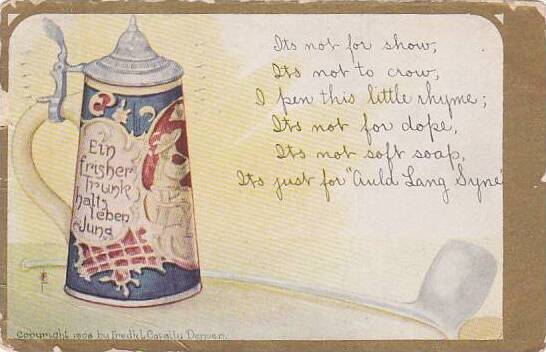 Its not for show,
Its not to crow,
I pen this little rhyme;
Its not for dope,
Its not soft soap,
Its just for "Auld Lang Syne"
Ein
frisher
Trunk
halts
leben
Jung
Copyright 1908 by Fred'k L. Cavally Denver.